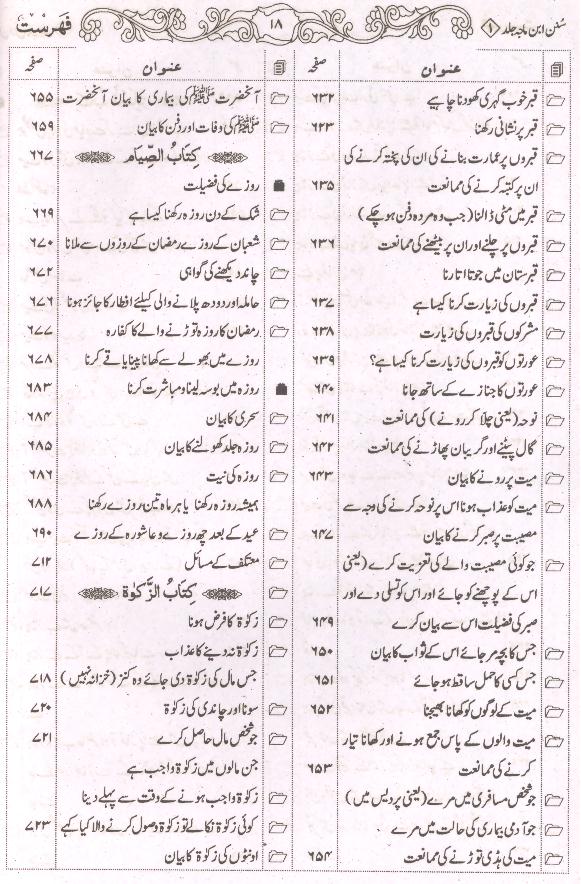 سُنن ابن ماجہ جلد ۱
۱۸
فہرست
عنوان
صفحہ
قبر خوب گہری کھودنا چاہیے ۶۳۲
قبر پر نشانی رکھنا ۶۲۳
قبروں پر عمارت بنانے کی ان کی پختہ کرنے کی
ان پر کتبہ کرنے کی ممانعت ۶۳۵
قبر میں مٹی ڈالنا (جب وہ مردہ دفن ہو چکے)
قبروں پر چلنے اور ان پر بیٹھنے کی ممانعت ۶۳۶
قبرستان میں جوتا اتارنا
قبروں کی زیارت کرنا کیسا ہے ۶۳۷
مشرکوں کی قبروں کی زیارت ۶۳۸
عورتوں کو قبروں کی زیارت کرنا کیسا ہے؟ ۶۳۹
عورتوں کا جنازے کے ساتھ جانا ۶۴۰
نوحہ (یعنی چلا کر رونے) کی ممانعت ۶۴۱
گال پیٹنے اور گریبان پھاڑنے کی ممانعت ۶۴۲
میت پر رونے کا بیان ۶۴۳
میت کو عذاب ہونا اس پر نوحہ کرنے کی وجہ سے
مصیبت پر صبر کرنے کا بیان ۶۴۷
جو کوئی مصیبت والے کی تعزیت کرے (یعنی
اس کے پوچھنے کو جائے اور اس کو تسلی دے اور
صبر کی فضیلت اس سے بیان کرے ۶۴۹
جس کا بچہ مر جائے اس کے ثواب کا بیان ۶۵۰
جس کسی کا حمل ساقط ہو جائے ۶۵۱
میت کے لوگوں کو کھانا بھیجنا ۶۵۲
میت والوں کے پاس جمع ہونے اور کھانا تیار
کرنے کی ممانعت ۶۵۳
جو شخص مسافری میں مرے (یعنی پردیس میں)
جو آدمی بیماری کی حالت میں مرے
میت کی ہڈی توڑنے کی ممانعت ۶۵۴
عنوان
صفحہ
آنحضرت ﷺ کی بیماری کا بیان آنحضرت ۶۵۵
ﷺ کی وفات اور دفن کا بیان ۶۵۹
کِتَابُ الصِّیَام ۶۶۷
روزے کی فضیلت
شک کے دن روزہ رکھنا کیسا ہے ۶۶۹
شعبان کے روزے رمضان کے روزوں سے ملانا ۶۷۰
چاند دیکھنے کی گواہی ۶۷۲
حاملہ اور دودھ پلانے والی کیلئے افطار کا جائز ہونا ۶۷۶
رمضان کا روزہ توڑنے والے کا کفارہ ۶۷۷
روزے میں بھولے سے کھانا پینا یا قے کرنا ۶۷۸
روزہ میں بوسہ لینا و مباشرت کرنا ۶۸۳
سحری کا بیان ۶۸۴
روزہ جلد کھولنے کا بیان ۶۸۵
روزہ کی نیت ۶۸۶
ہمیشہ روزہ رکھنا یا ہر ماہ تین روزے رکھنا ۶۸۸
عید کے بعد چھ روزے و عاشورہ کے روزے ۶۹۰
معتکف کے مسائل ۷۱۲
کِتَابُ الزَّکٰوۃ ۷۱۷
زکوٰۃ کا فرض ہونا
زکوٰۃ نہ دینے کا عذاب
جس مال کی زکوٰۃ دی جائے وہ کنز (خزانہ نہیں) ۷۱۸
سونا اور چاندی کی زکوٰۃ ۷۲۰
جو شخص مال حاصل کرے ۷۲۱
جن مالوں میں زکوٰۃ واجب ہے
زکوٰۃ واجب ہونے کے وقت سے پہلے دینا
کوئی زکوٰۃ نکالے تو زکوٰۃ وصول کرنے والا کیا کہے ۷۲۳
اونٹوں کی زکوٰۃ کا بیان